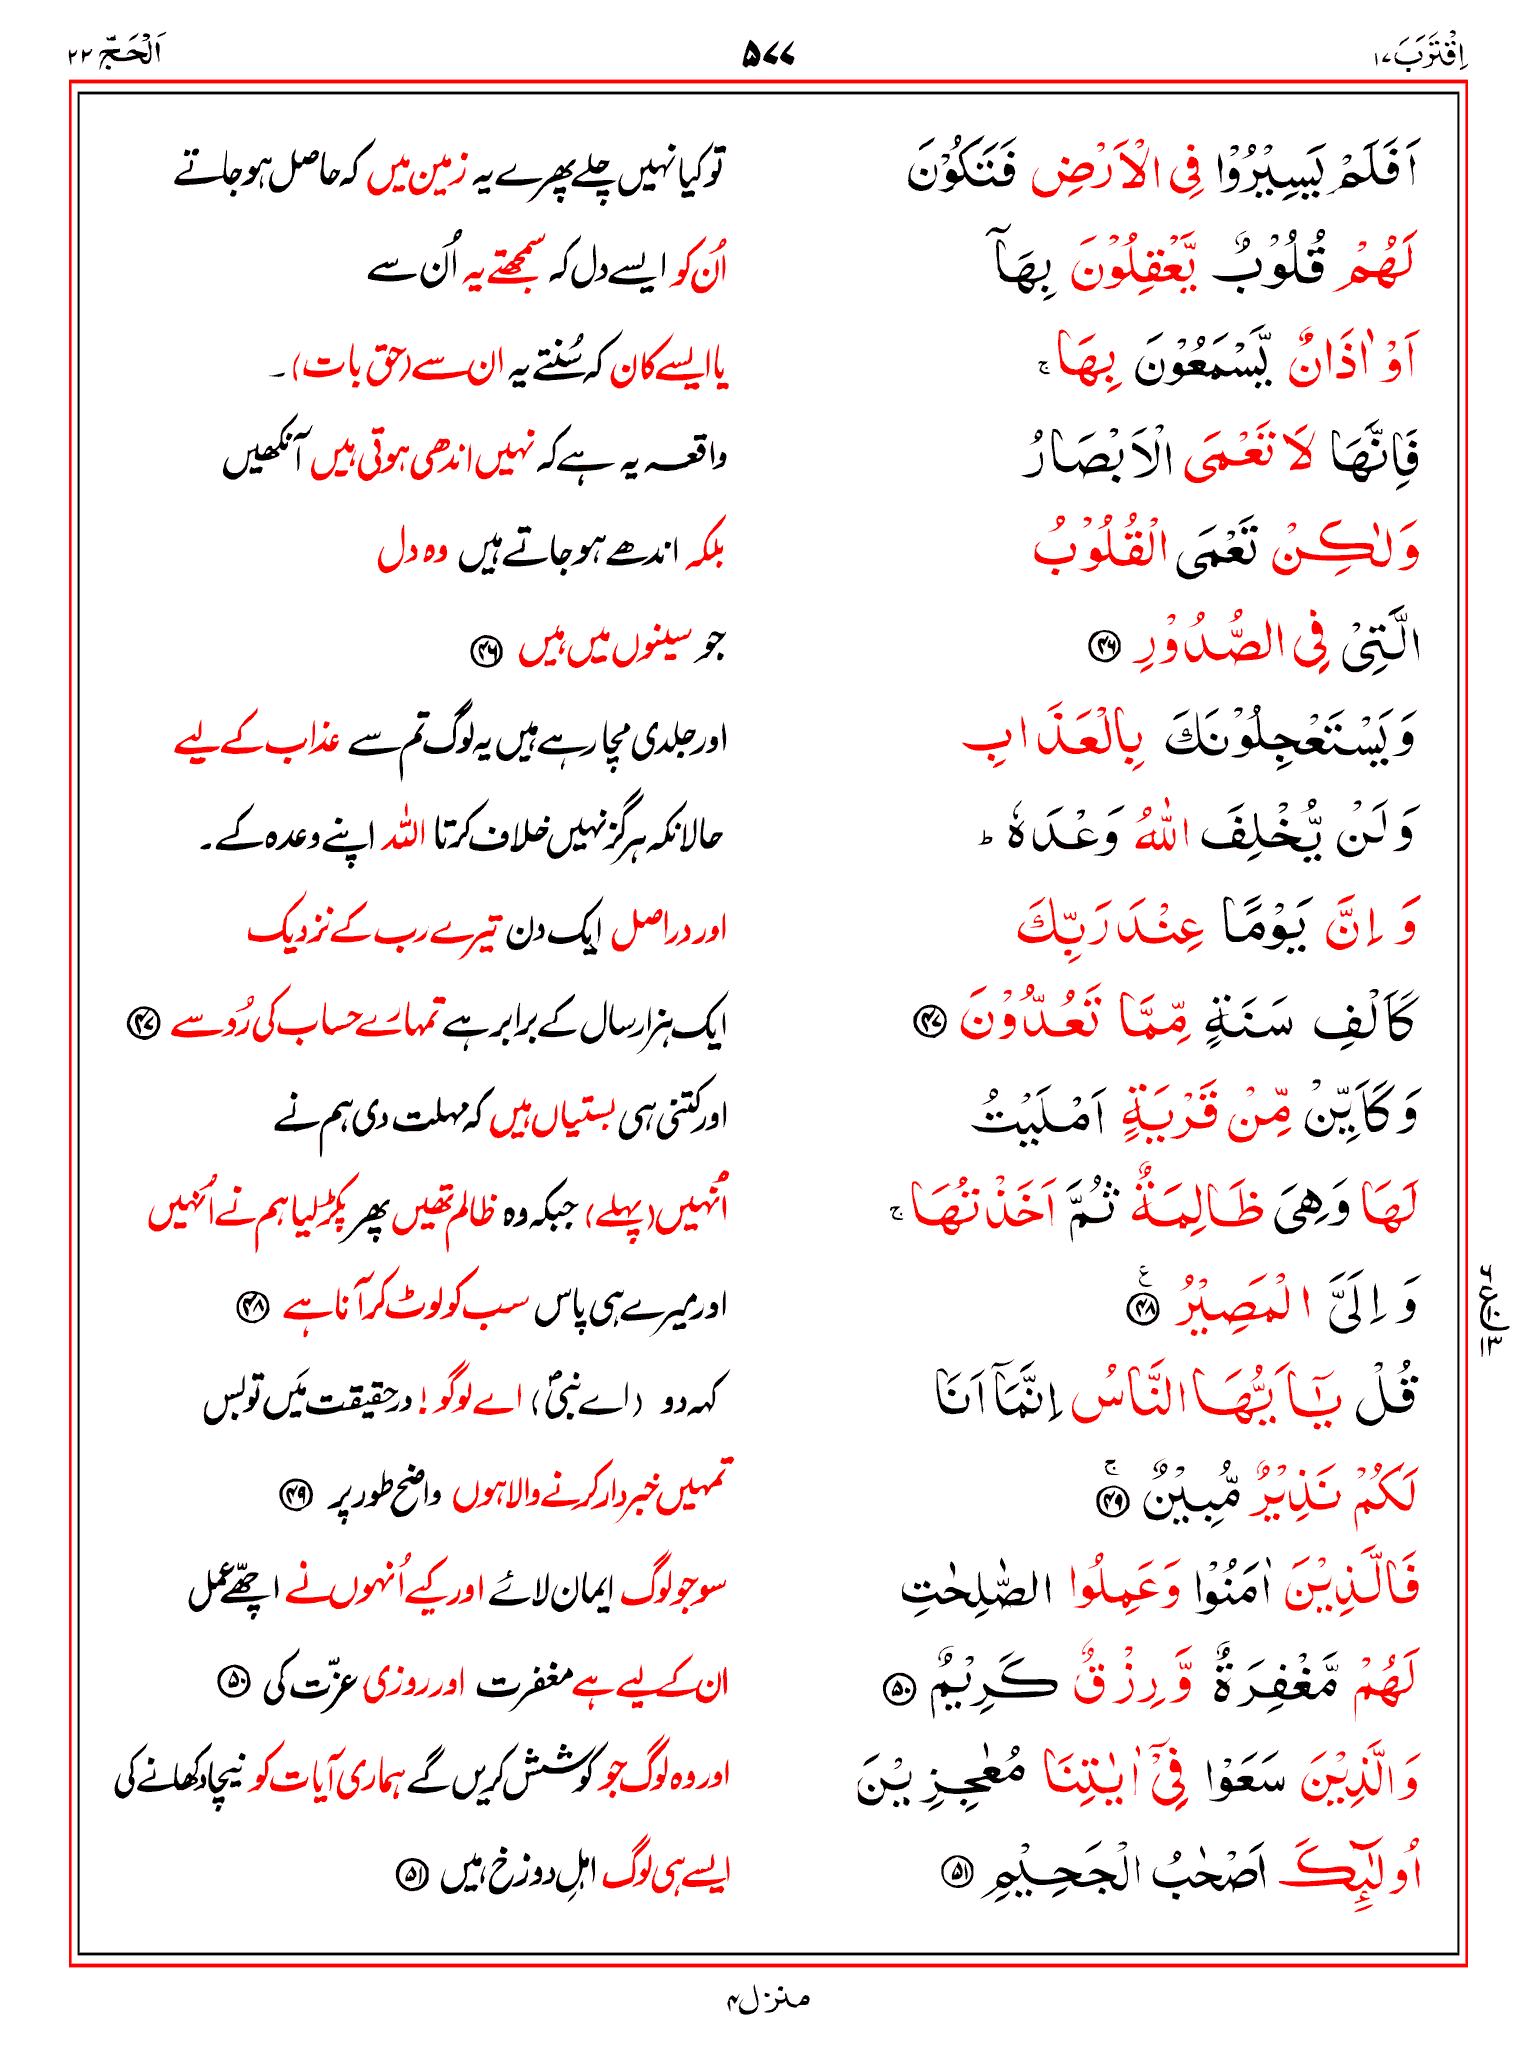 اِقْتَرَبَ ۱۷
۵۷۷
اَلْحَجّ ۲۲
اَفَلَمْ يَسِيْرُوْا فِى الْاَرْضِ فَتَكُوْنَ تو کیا نہیں چلے پھرے یہ زمین میں کہ حاصل ہوجاتے
لَهُمْ قُلُوْبٌ يَّعْقِلُوْنَ بِهَاۤ اُن کو ایسے دل کہ سمجھتے یہ اُن سے
اَوْ اٰذَانٌ يَّسْمَعُوْنَ بِهَا ۚ یا ایسے کان کہ سُنتے یہ ان سے (حق بات) ۔
فَاِنَّهَا لَا تَعْمَى الْاَبْصَارُ واقعہ یہ ہے کہ نہیں اندھی ہوتی ہیں آنکھیں
وَلٰكِنْ تَعْمَى الْقُلُوْبُ بلکہ اندھے ہوجاتے ہیں وہ دل
الَّتِىْ فِى الصُّدُوْرِ ۴۶ جو سینوں میں ہیں ۴۶
وَيَسْتَعْجِلُوْنَكَ بِالْعَذَابِ اور جلدی مچا رہے ہیں یہ لوگ تم سے عذاب کے لیے
وَلَنْ يُّخْلِفَ اللّٰهُ وَعْدَهٗ ؕ حالانکہ ہرگز نہیں خلاف کرتا اللہ اپنے وعدہ کے ۔
وَ اِنَّ يَوْمًا عِنْدَ رَبِّكَ اور دراصل ایک دن تیرے رب کے نزدیک
كَاَلْفِ سَنَةٍ مِّمَّا تَعُدُّوْنَ ۴۷ ایک ہزار سال کے برابر ہے تمہارے حساب کی رُو سے ۴۷
وَكَاَيِّنْ مِّنْ قَرْيَةٍ اَمْلَيْتُ اور کتنی ہی بستیاں ہیں کہ مہلت دی ہم نے
لَهَا وَهِىَ ظَالِمَةٌ ثُمَّ اَخَذْتُهَا ۚ اُنہیں (پہلے) جبکہ وہ ظالم تھیں پھر پکڑ لیا ہم نے اُنہیں
وَ اِلَىَّ الْمَصِيْرُ ۴۸ اور میرے ہی پاس سب کو لوٹ کر آنا ہے ۴۸
قُلْ يٰۤاَيُّهَا النَّاسُ اِنَّمَاۤ اَنَا کہہ دو (اے نبیؐ) اے لوگو! درحقیقت مَیں تو بس
لَكُمْ نَذِيْرٌ مُّبِيْنٌ ۚ ۴۹ تمہیں خبردار کرنے والا ہوں واضح طور پر ۴۹
فَالَّذِيْنَ اٰمَنُوْا وَعَمِلُوا الصّٰلِحٰتِ سو جو لوگ ایمان لائے اور کیے اُنہوں نے اچھّے عمل
لَهُمْ مَّغْفِرَةٌ وَّ رِزْقٌ كَرِيْمٌ ۵۰ ان کے لیے ہے مغفرت اور روزی عزّت کی ۵۰
وَالَّذِيْنَ سَعَوْا فِىْۤ اٰيٰتِنَا مُعٰجِزِيْنَ اور وہ لوگ جو کوشش کریں گے ہماری آیات کو نیچا دکھانے کی
اُولٰٓئِكَ اَصْحٰبُ الْجَحِيْمِ ۵۱ ایسے ہی لوگ اہلِ دوزخ ہیں ۵۱
منزل ۴